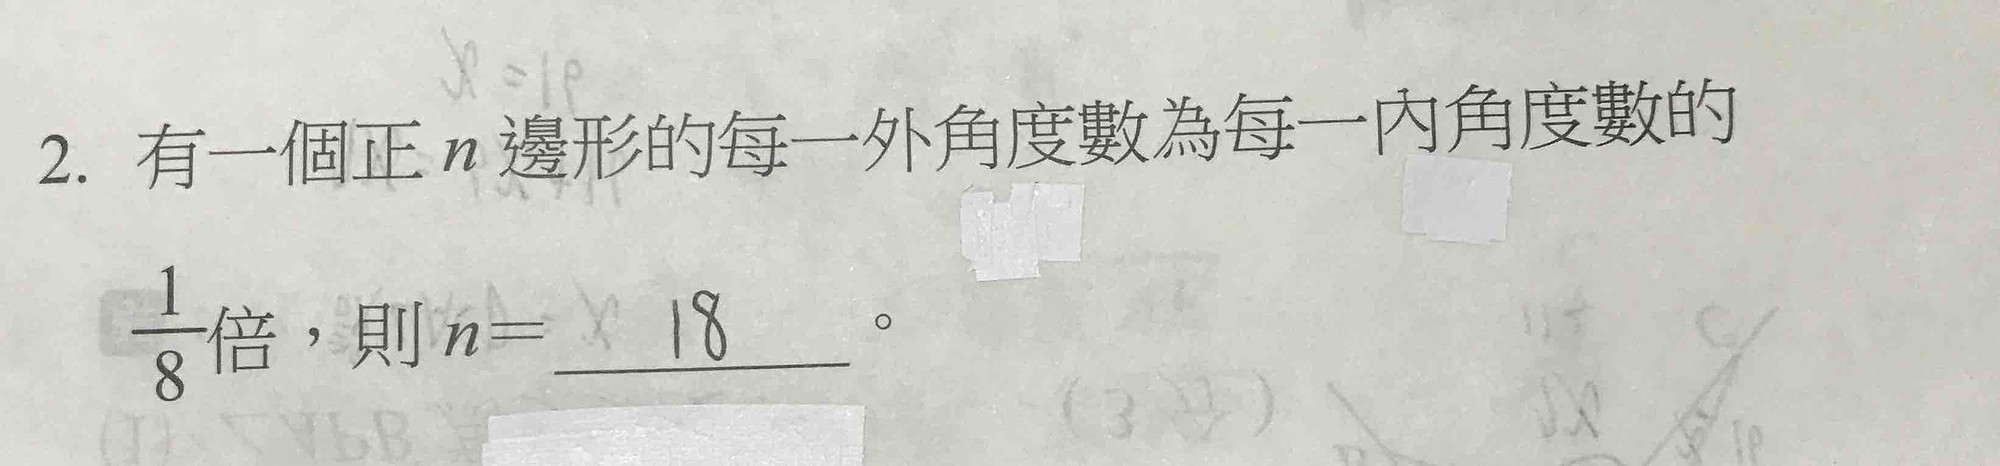 2. 有一個正 n 邊形的每一外角度數為每一內角度數的
1/8倍，則 n= 18 。